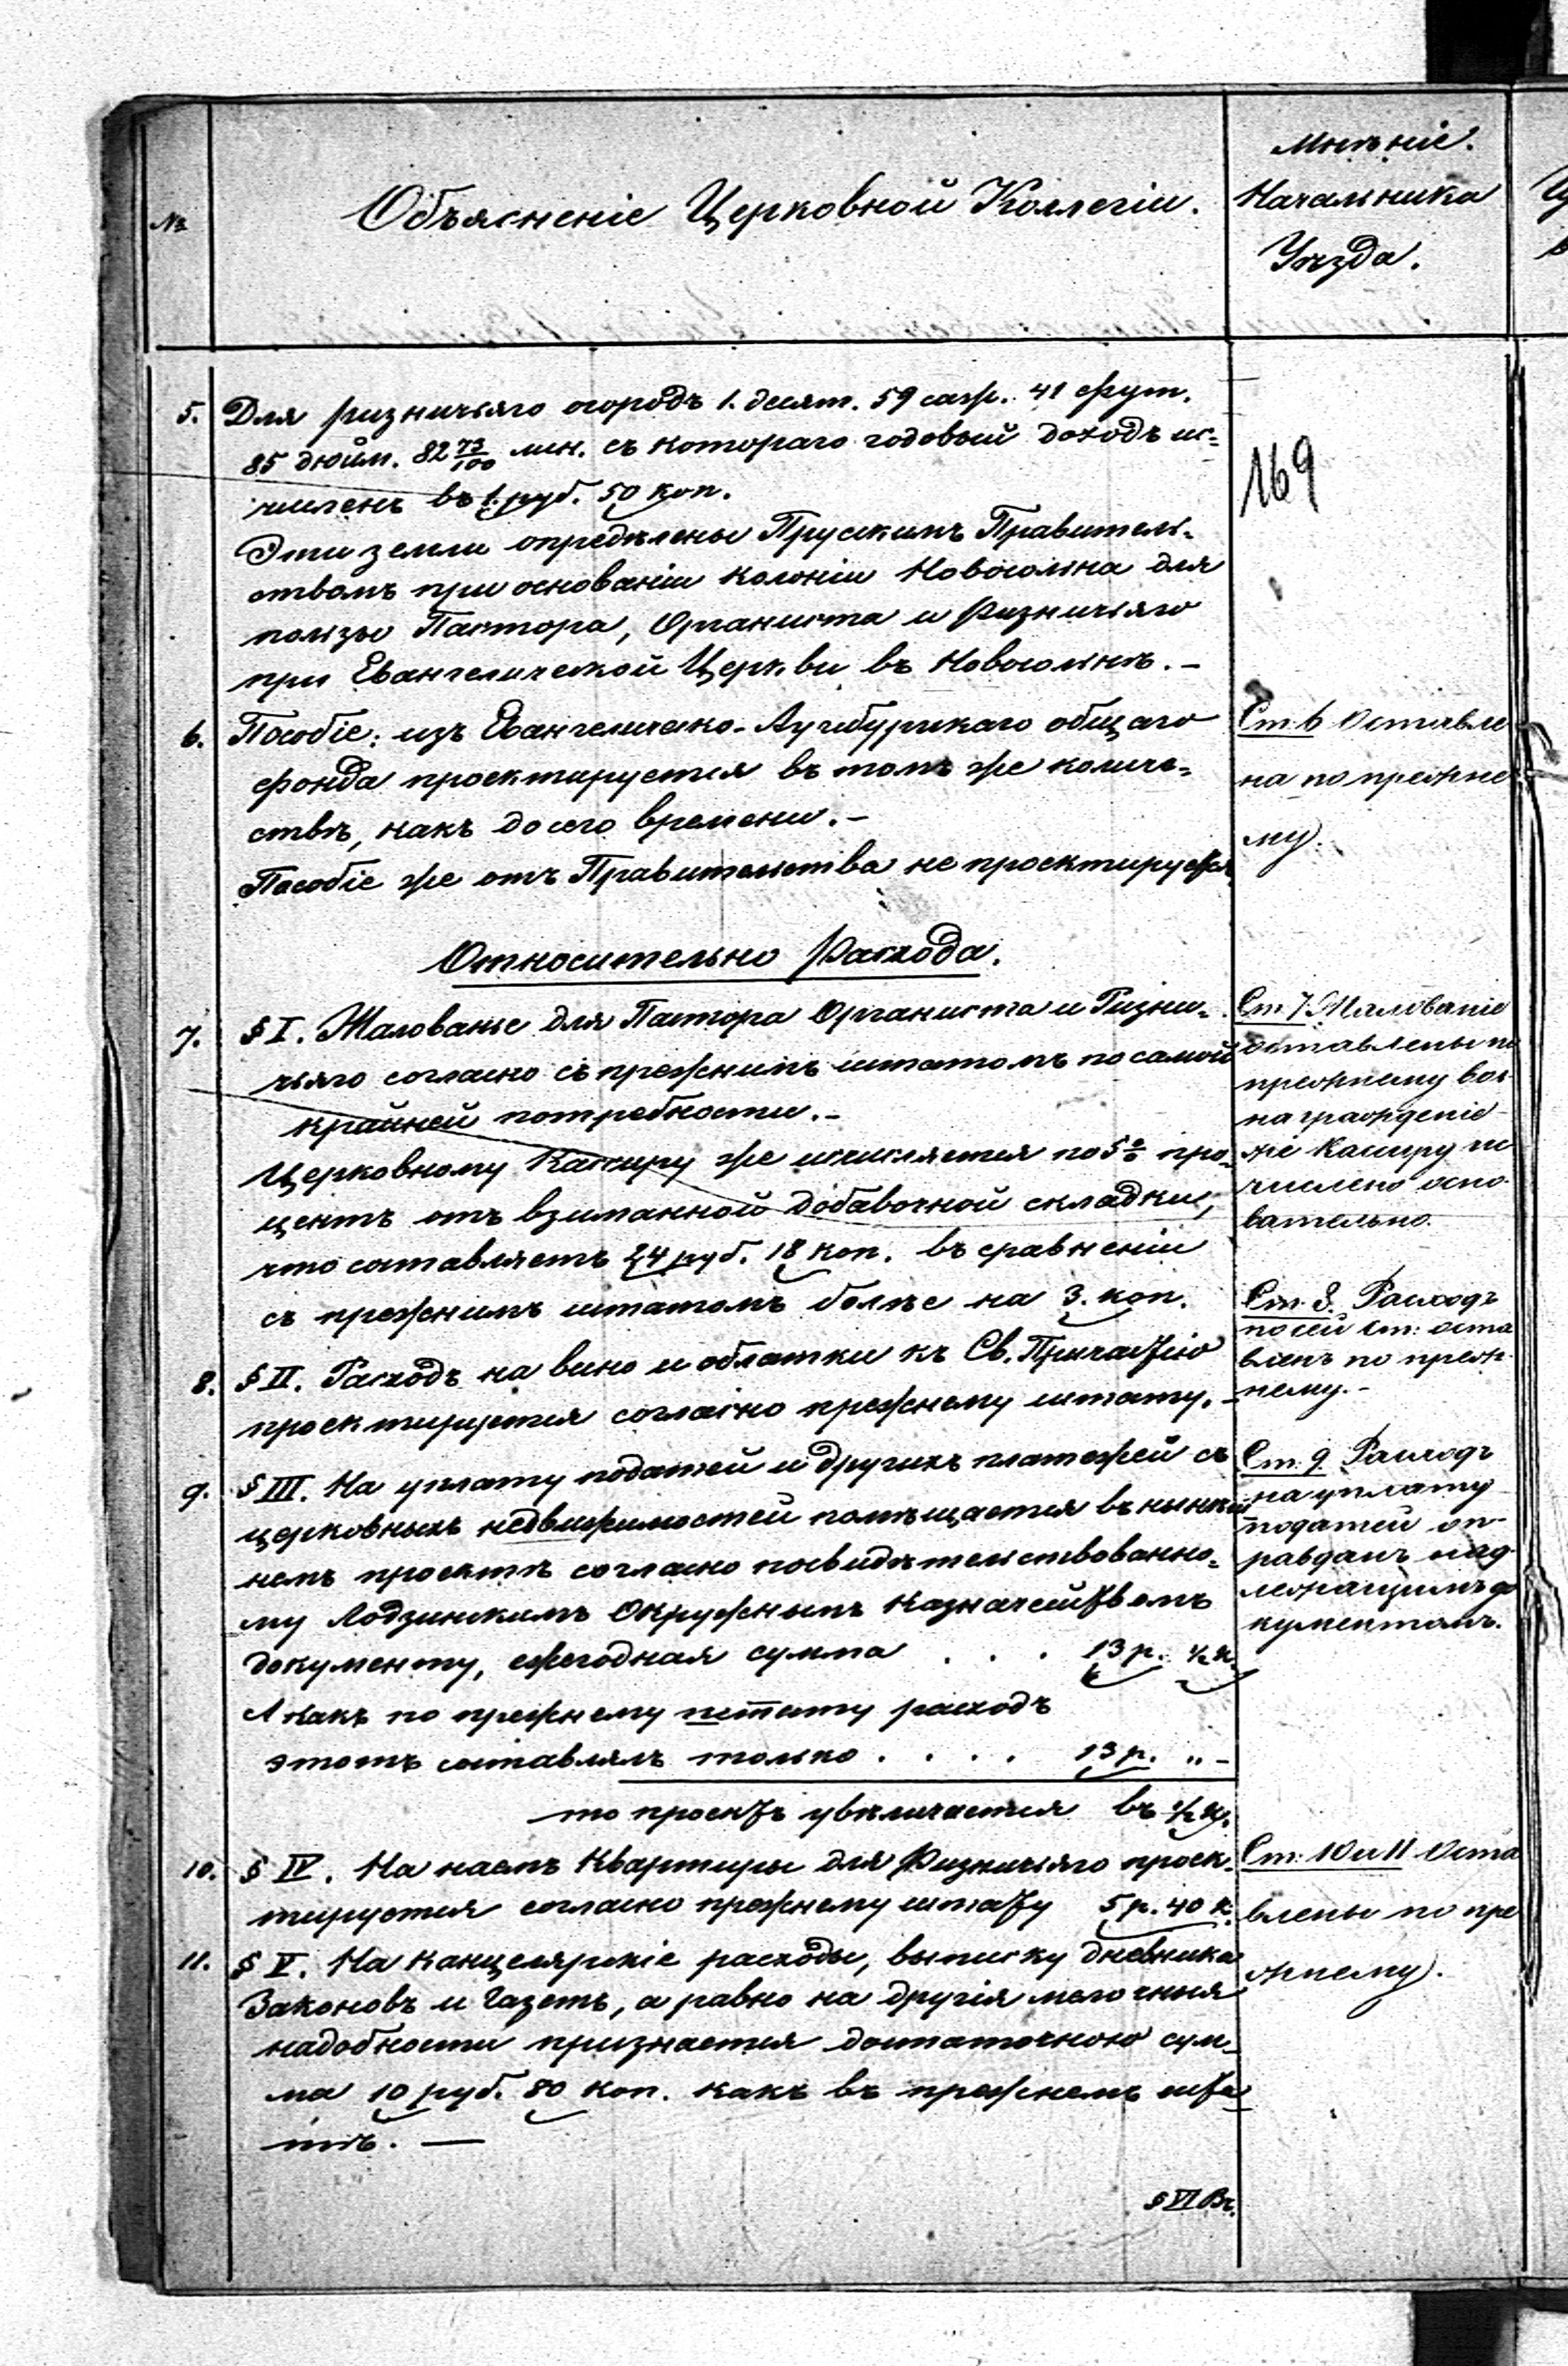 №
Объясненіе Церковной Коллегіи.
Мнѣніе
Начальника
Уѣзда.
169
5. Для ризничьяго огородъ 1. десят. 59 саж. 41 фут.
85 дюйм. 82 73/100 лин. съ котораго годовый доходъ ис-
численъ въ 1. руб. 50 коп.
Эти земли опредѣлены Прусскимъ Правитель-
ствомъ при основаніи колоніи Новосольна для
пользы Пастора, Органиста и Ризничьяго
при Евангелической Церкви въ Новосольнѣ. –
6. Пособіе: изъ Евангелическо-Аугсбургскаго общаго
фонда проектируется въ томъ же количе-
ствѣ, какъ до сего времени. –
Пособіе же отъ Правительства не проектируется
Относительно Расхода.
7. § I. Жалованье для Пастора Органиста и Ризни-
чьяго согласно съ прежнимъ штатомъ по самой
крайней потребности. –
Церковному Кассиру же исчисляется по 5% про-
центъ отъ взиманной добавочной складки,
что составляетъ 24 руб. 18 коп. въ сравненіи
съ прежнимъ штатомъ болѣе на 3. коп.
8. § II. Расходъ на вино и облатки къ Св. Причастію
проектируется согласно прежнему штату. –
9. § III. На уплату податей и другихъ платежей съ
церковныхъ недвижимостей помѣщается въ нынѣш-
немъ проектѣ согласно посвидѣтельствованно-
му Лодзинскимъ Окружнымъ Казначействомъ
документу, ежегодная сумма . . . 13 р. ½ к.
А какъ по прежнему штату расходъ
этотъ составлялъ только . . . . 13 р. „ –
то проектъ увеличается въ ½ к.
10. § IV. На наемъ Квартиры для Ризничьяго проек-
тируется согласно прежнему штату 5 р. 40 к.
11. § V. На Канцелярскіе расходы, выписку дневника
Законовъ и Газетъ, а равно на другія мелочныя
надобности признается достаточною сум-
ма 10 руб. 80 коп. какъ въ прежнемъ шта-
тѣ. —
§ VI Въ.
Ст. 6 Оставле
на по прежне
му.
Ст. 7. Жалованіе
оставлены по
прежнему воз
награжденіе
же Касиру ис
числено осно
вательно.
Ст. 8. Расходъ
по сей ст: оста
вленъ по преж
нему. –
Ст. 9 Расходъ
на уплату
податей оп-
равданъ над
лежащимъ до
кументомъ.
Ст. 10 и 11 Оста
влены по пре
жнему.